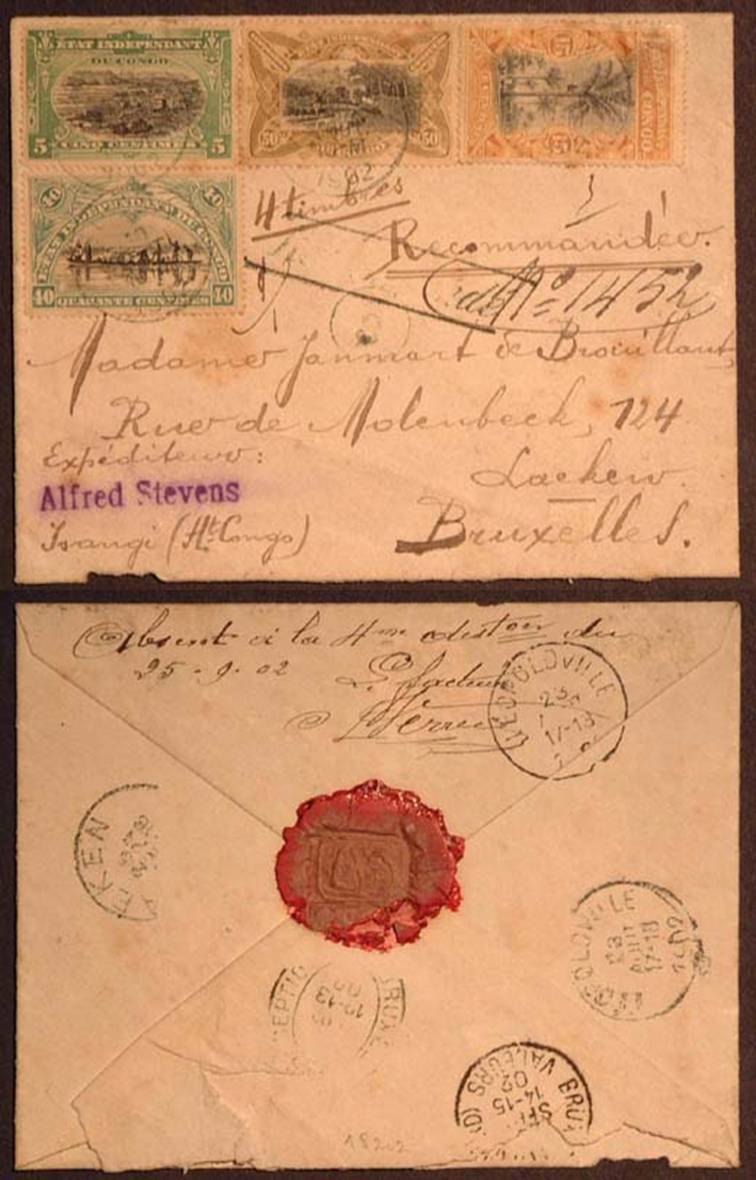 ETAT INDEPENDANT
DU CONGO
5 5
CINQ CENTIMES
50 50
15
CONGO
1902
40 40
ETAT INDEPENDANT DU CONGO
40 QUARANTE CENTIMES 40
4 timbres
Recommandée.
Nº 1452
Madame Janmart de Brouillant
Rue de Molenbeek, 124
Expéditeur:
Laeken
Alfred Stevens
Isangi (Ht Congo)
Bruxelles.
Absent à la 4me distion du
25-9-02
Le facteur
LEOPOLDVILLE
17-18
EKEN
LEOPOLDVILLE
23
AOUT
17-18
1902
BRUX
12-13
02
BRUX
VALEURS
SEPT
14-15
02
18202